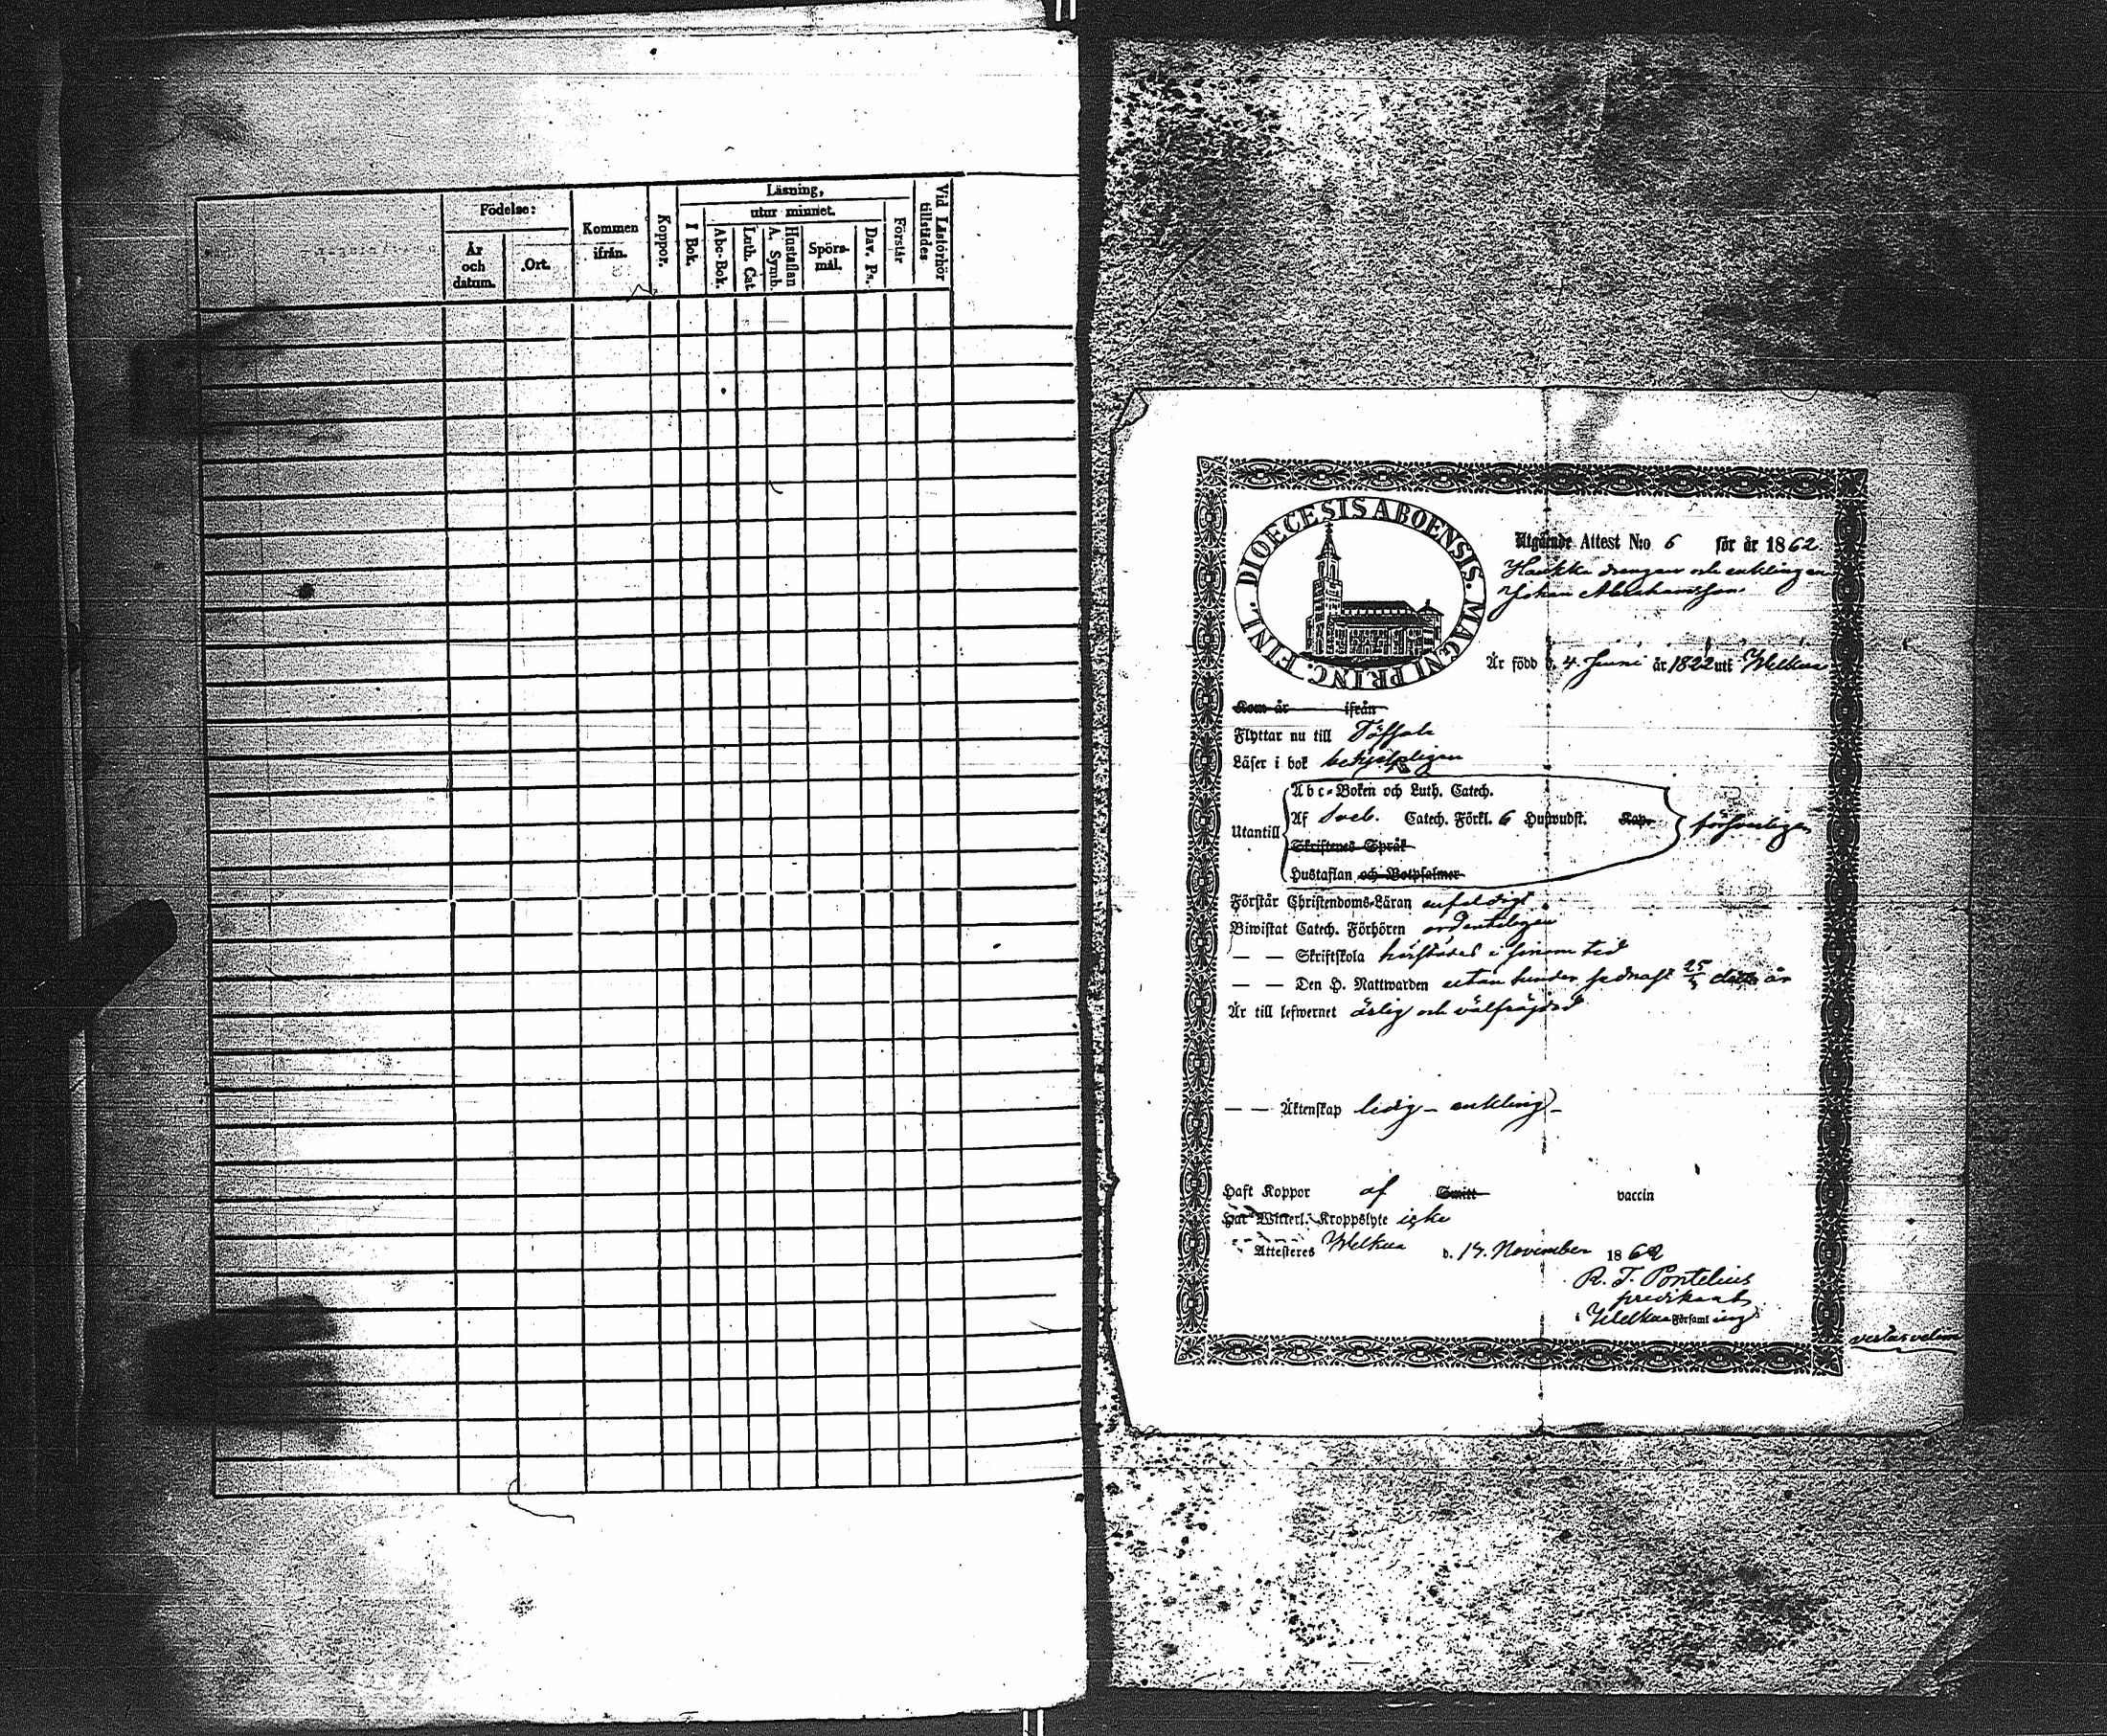 Födelse:
År och datum.
Ort.
Kommen ifrån.
Koppor.
Läsning,
I Bok.
utur minnet.
Abc-Bok.
Luth. Cat.
Hustaflan
A. Symb.
Spörs-
mål.
Dav. Ps.
Förstår
Vid Läsförhör
tillstädes
DIOECESIS ABOENSIS. MAGNI PRINC. FINL.
Utgående Attest N:o 6 för år 1862.
drengen och enklingen
Johan Abrahamsson
Är född d. 4 Juni år 1822 uti Welkua
Kom år ifrån
Flyttar nu till Töfsala
Läser i bok behjelpligen
Abc-Boken och Luth. Catech.
Utantill Af Sveb. Catech. Förkl. 6 Hufwudst. Kap. försvarligen
Skriftenes Språk
Hustaflan och Botpsalmer
Förstår Christendoms-Läran enfaldigt
Biwistat Catech. Förhören ordentligen
— — Skriftskola i sinom tid
— — Den H. Nattwarden utan hinder sednast 25/5 detta år
Är till lefwernet ärlig och välfrägdad
— — Äktenskap ledig - enkling -
Haft Koppor af Smitt vaccin
Har Witterl. Kroppslyte icke
Attesteres Welkua d. 14. November 1862
R. T. Pontelius
predikant
i Welkua Församling